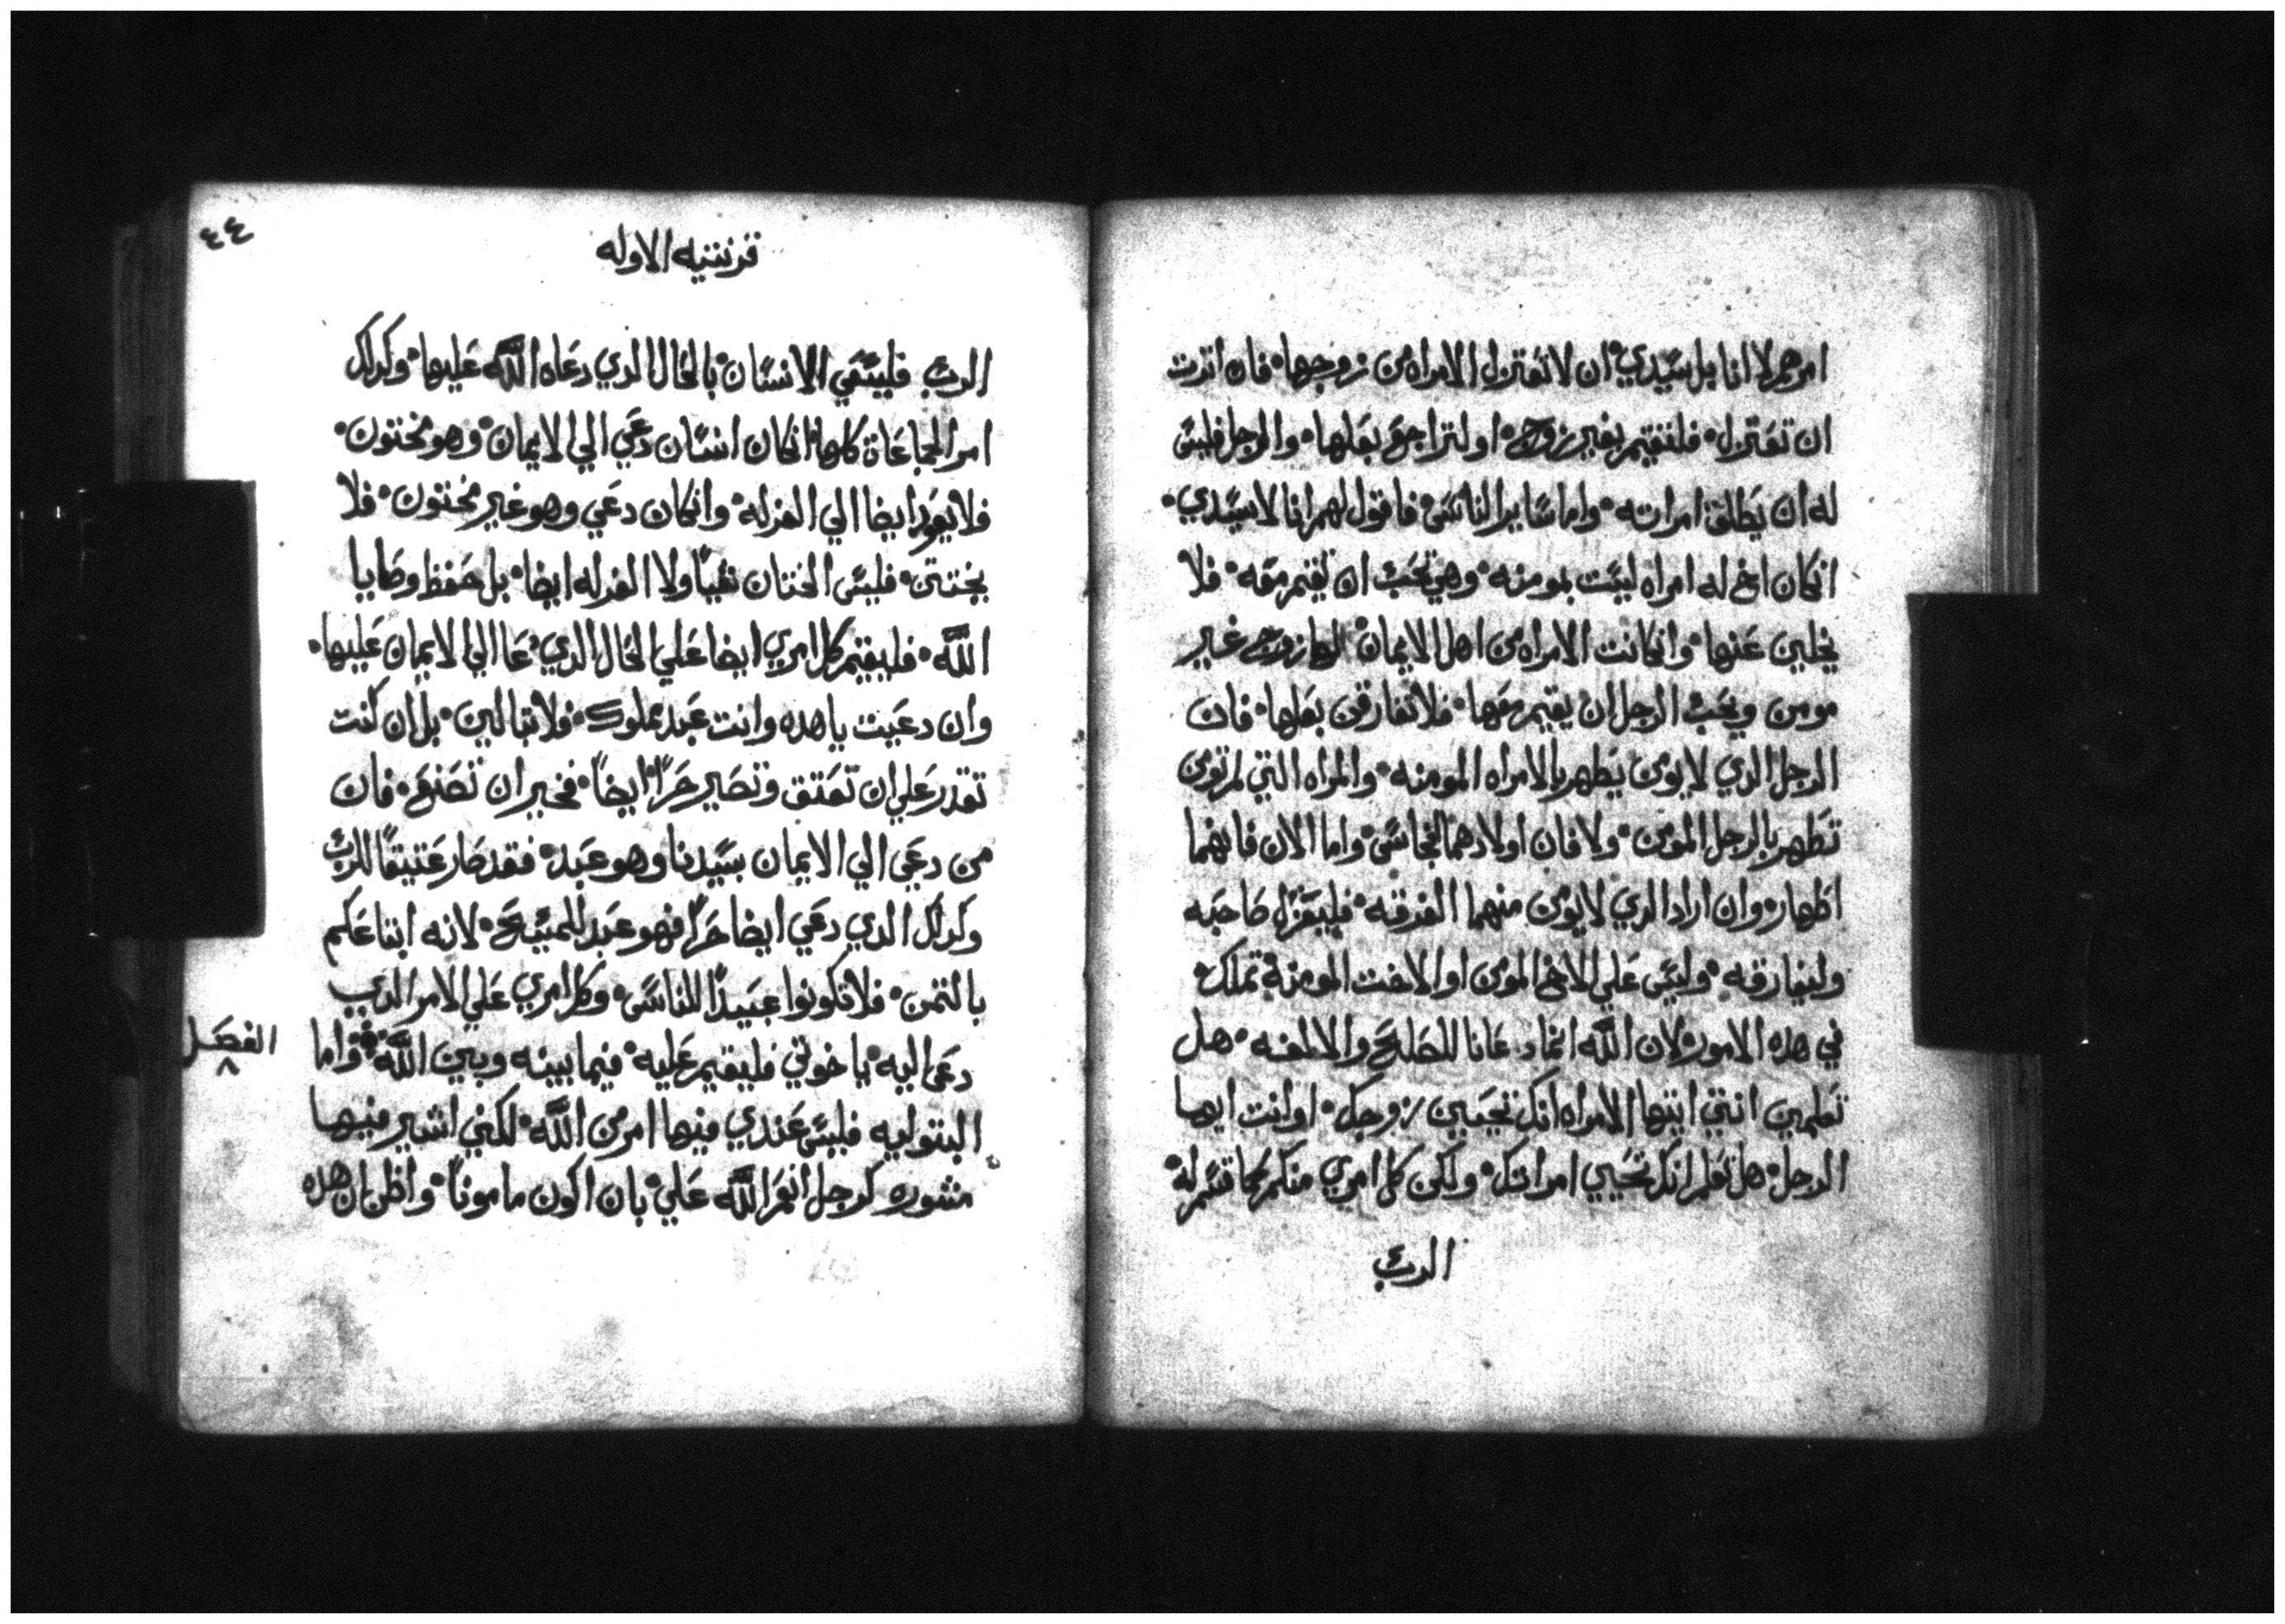 امرهم لا انا بل سيدي ان لا تعتزل الامراه من زوجها فان اثرت
ان تعتزل فلتقيم بغير زوج او لتراجع بعلها والرجل فليس
له ان يطلق امراته واما ساير الناس فاقول لهم انا لا سيدي
انكان اخ له امراه ليست بمومنه وهي تحب ان تقيم معه فلا
يخلين عنها وانكانت الامراه من اهل الايمان لها زوج غير
مومن ويحب الرجل ان يقيم معها فلا تفارقن بعلها فان
الرجل الدي لا يومن يطهر بالامراه المومنه والمراه التي لم تومن
تطهر بالرجل المومن ولا فان اولادهما انجاس واما الان فانهما
اطهار وان اراد الدي لا يومن منهما الفرقه فليعتزل صاحبه
وليفارقه وليس علي الاخ المومن او الاخت المومنة تملك
في هده الامور لان الله انما دعانا للصلح والالفه هل
تعلمين انتي ايتها الامراه انك تحيين زوجك او انت ايها
الرجل هل تعلم انك تحيي امراتك ولكن كل امري منكم كما قسم له
الرب
٤٤
قرنتيه الاوله
الرب فليسعي الانسان بالحال الدي دعاه الله عليها وكدلك
امر الجماعاة كلها انكان انسان دعي الي الايمان وهو مختون
فلا يعود ايضا الي الغرله وانكان دعي وهو غير مختون فلا
يختتن فليس الختان شيا ولا الغرله ايضا بل حفظ وصايا
الله فليقيم كل امري ايضا علي الحال الدي دعا الي الايمان عليها
وان دعيت يا هده وانت عبد مملوك فلا تبالين بل ان كنت
تقدر علي ان تعتق وتصير حرا ايضا فخير ان تصنع فان
من دعي الي الايمان بسيدنا وهو عبد فقد صار عتيقا للرب
وكدلك الدي دعي ايضا حرا فهو عبد للمسيح لانه ابتاعكم
بالثمن فلا تكونوا عبيدا للناس وكل امري علي الامر الدي
دعي اليه يا خوتي فليقيم عليه فيما بينه وبين الله واما
الفصل ٨
البتوليه فليس عندي فيها امر من الله لكني اشير فيها
مشوره كرجل انعم الله علي بان اكون مامونا واظن ان هده